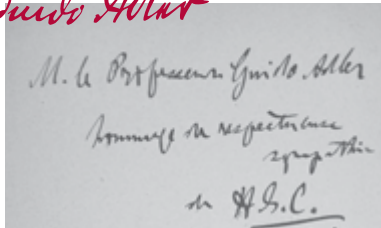 Guido Adler
M. le Professeur Guido Adler
hommage de respectueuse
sympathie
de H. G. C.